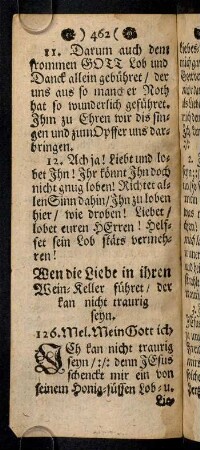 ) 462 (
11. Darum auch dem
frommen GOTT Lob und
Danck allein gebühret / der
uns aus so mancher Noth
hat so wunderlich geführet.
Ihm zu Ehren wir dis sin-
gen und zum Opffer uns dar-
bringen.
12. Ach ja! Liebt und lo-
bet Ihn! Ihr könnt Ihn doch
nicht gnug loben! Richtet al-
len Sinn dahin / Ihn zu loben
hier / wie droben! Liebet /
lobet euren HErren! Helf-
fet sein Lob stäts vermeh-
ren!
Wen die Liebe in ihren
Wein-Keller führet / der
kan nicht traurig
seyn.
126. Mel. Mein Gott ich
ICh kan nicht traurig
seyn /:/: denn JEsus
schenckt mir ein von
seinem Honig-süssen Lob- u.
Lie-